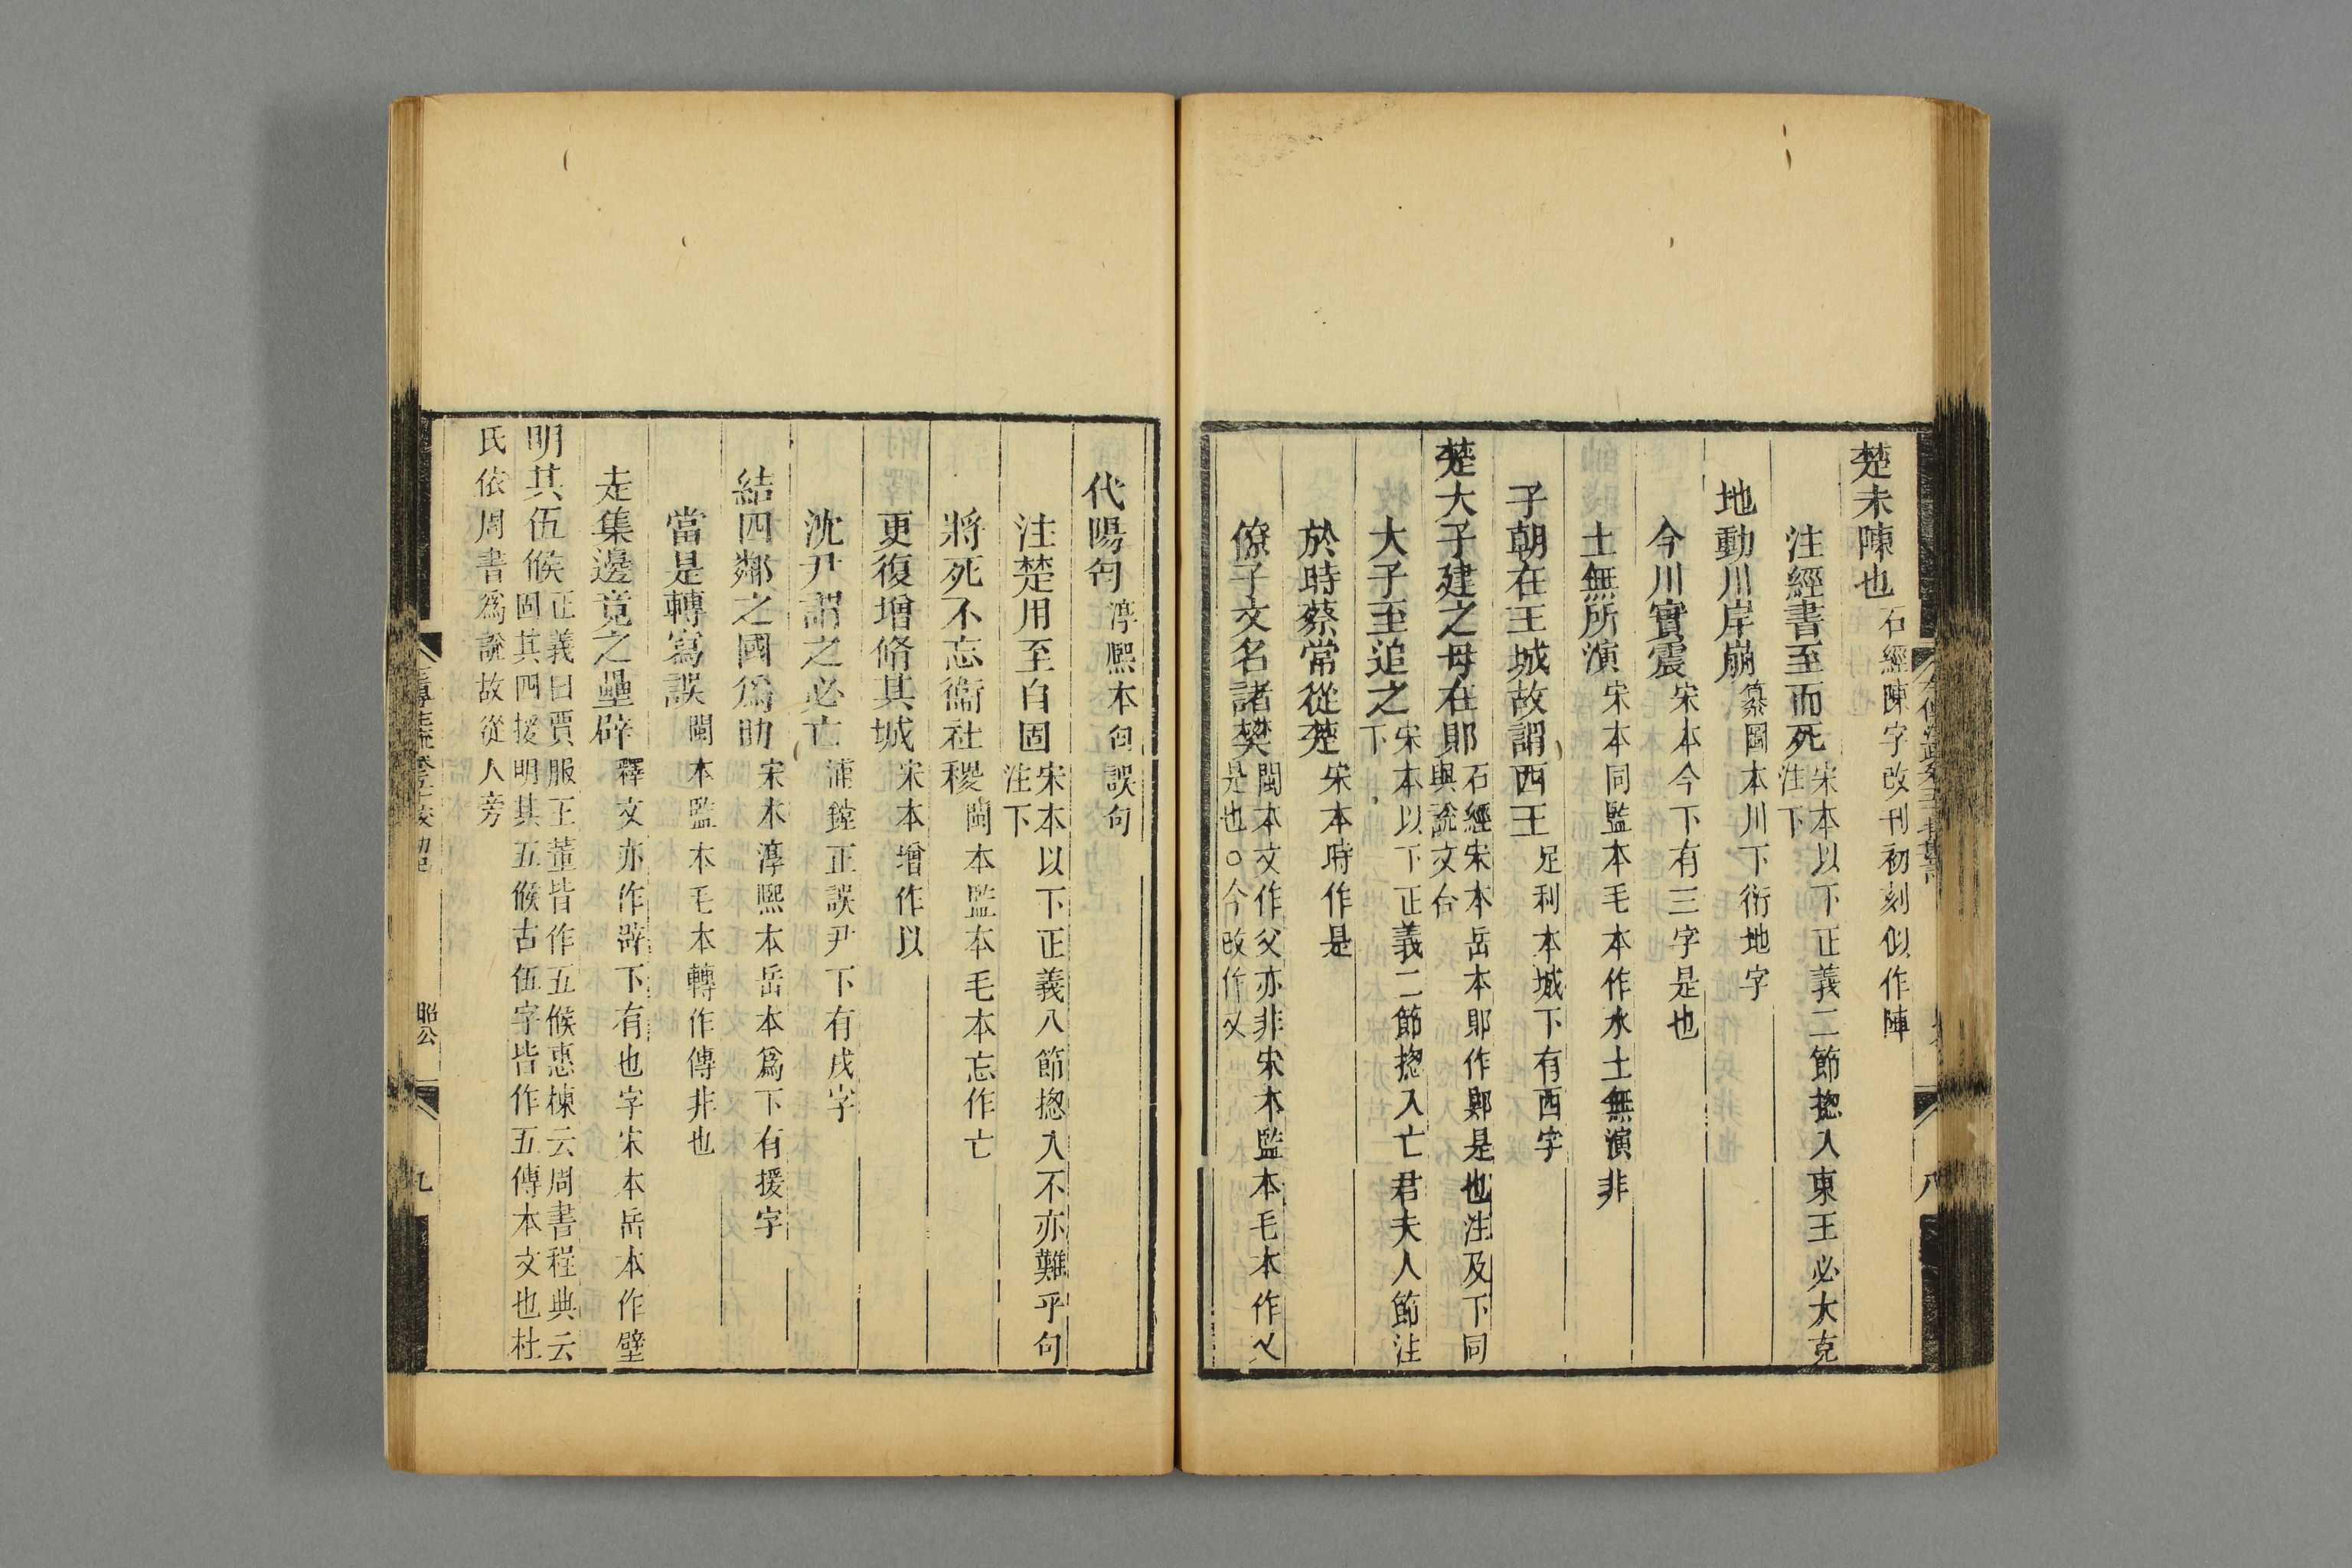 楚未陳也石經陳字改刊初刻似作陣
注經書至而死宋本以下正義二節揔入東王必大克注下
地動川岸崩纂圖本川下衍地字
今川實震宋本今下有三字是也
土無所演宋本同監本毛本作水土無演非
子朝在王城故謂西王足利本城下有西字
楚大子建之母在郹石經宋本岳本郹作鄓是也注及下同與說文合
大子至追之宋本以下正義二節揔入亡君夫人節注下
於時蔡常從楚宋本時作是
僚子文名諸樊閩本文作父亦非宋本監本毛本作乂是也○今改作乂
代陽匄淳熙本匄誤句
注楚用至自固宋本以下正義八節揔入不亦難乎句注下
將死不忘衞社稷閩本監本毛本忘作亡
更復增脩其城宋本增作以
沈尹謂之必亡浦鏜正誤尹下有戌字
結四鄰之國爲助宋本淳熙本岳本爲下有援字
當是轉寫誤閩本監本毛本轉作傳非也
走集邊竟之壘辟釋文亦作辟下有也字宋本岳本作壁
明其伍候正義曰賈服王董皆作五候惠棟云周書程典云固其四援明其五候古伍字皆作五傳本文也杜
氏依周書爲說故從人旁
昭公
九
八